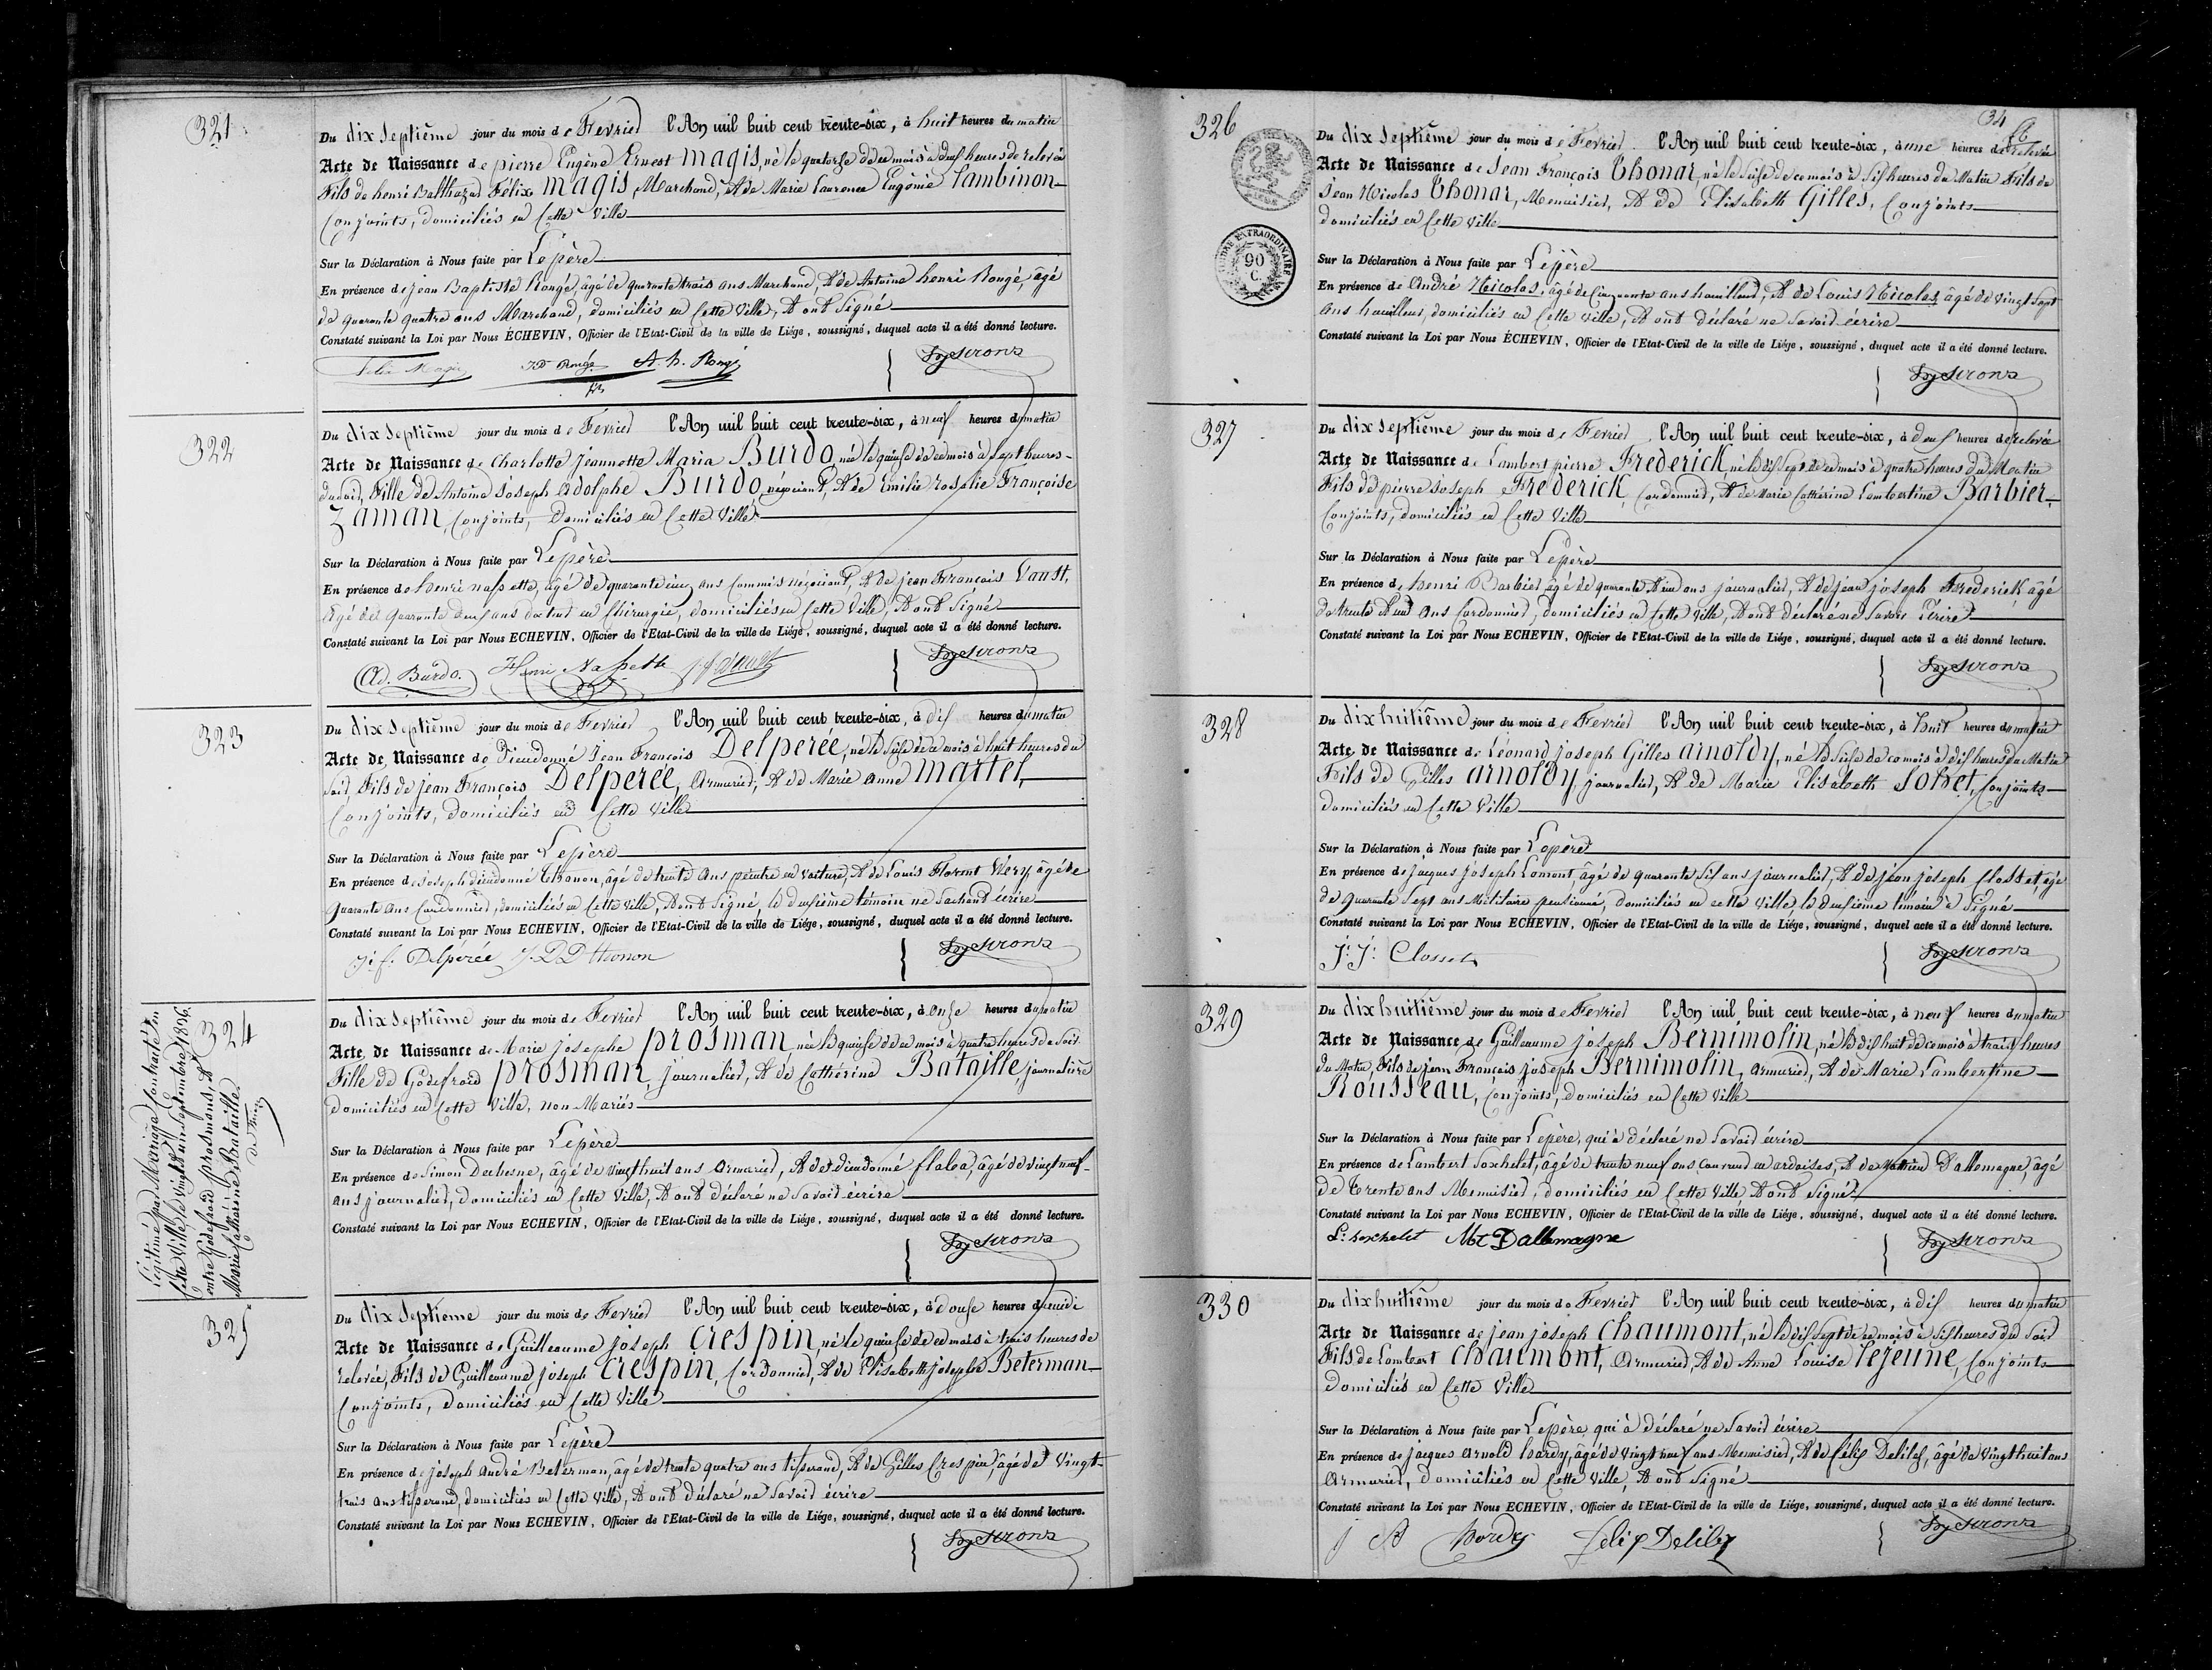 321
Du dix Septième jour du mois de Fevrier l'An mil huit cent trente-six, à huit heures du matin
Acte de Naissance de pierre Eugène Ernest magis, né le quatorze de ce mois à deux heures de relevée
Fils de henri Balthazar Félix magis, Marchand, & de Marie Laurence Eugénie Lambinon
Conjoints, domiciliés en Cette Ville
Sur la Déclaration à Nous faite par Le père
En présence de jean Baptiste Rongé, âgé de quarante trois ans Marchand, & de Antoine henri Rongé, âgé
de quarante quatre ans Marchand, domiciliés en Cette Ville, & ont Signé
Constaté suivant la Loi par Nous ÉCHEVIN, Officier de l'Etat-Civil de la ville de Liége, soussigné, duquel acte il a été donné lecture.
Félix Magis A. h. Rongé
322
Du dix Septième jour du mois de Fevrier l'An mil huit cent trente-six, à neuf heures du matin
Acte de Naissance de Charlotte Jeannette Maria Burdo, née le quinze de ce mois à Sept heures
du Soir, Fille de Antoine Joseph Adolphe Burdo, négociant, & de Emilie rosalie Françoise
Zaman, Conjoints, Domiciliés en Cette Ville
Sur la Déclaration à Nous faite par Le père
En présence de henri nassette, âgé de quarante cinq ans Commis négociant, & de jean François Vaust,
âgé de quarante deux ans docteur en Chirurgie, domiciliés en Cette Ville, & ont Signé
Constaté suivant la Loi par Nous ECHEVIN, Officier de l'Etat-Civil de la ville de Liége, soussigné, duquel acte il a été donné lecture.
Ad. Burdo. Henri
323
Du dix Septième jour du mois de Fevrier l'An mil huit cent trente-six, à dix heures du matin
Acte de Naissance de Dieudonné Jean François Delperée, né le Seize de ce mois à huit heures du
Soir, Fils de jean François Delperée, Armurier, & de Marie Anne Martel,
Conjoints, Domiciliés en Cette Ville
Sur la Déclaration à Nous faite par Le père
En présence de Joseph dieudonné Thonon, âgé de trente Ans peintre en Voiture, & de Louis Florent Wery âgé de
quarante Ans Cordonnier, domiciliés en Cette Ville, & ont Signé, le deuxième témoin ne Sachant écrire
Constaté suivant la Loi par Nous ECHEVIN, Officier de l'Etat-Civil de la ville de Liége, soussigné, duquel acte il a été donné lecture.
j. f. Delpérée J. D Thonon
324
Légitimé par Mariage Contracté en
Cette Ville, le vingt un Septembre 1836.
entre Godefroid prosmans, &
Marie Catherine Bataille.
Du dix Septième jour du mois de Fevrier l'An mil huit cent trente-six, à onze heures du matin
Acte de Naissance de Marie Josephe prosman née le quinze de ce mois à quatre heures du Soir
Fille de Godefroid prosman, journalier, & de Cathérine Bataille, journalière
domiciliés en Cette Ville, non Mariés
Sur la Déclaration à Nous faite par Le père
En présence de Simon Duchesne, âgé de vingt huit ans Armurier, & de dieudonné flaba, âgé de vingt neuf
ans journalier, domiciliés en Cette Ville, & ont déclaré ne Savoir écrire
Constaté suivant la Loi par Nous ECHEVIN, Officier de l'Etat-Civil de la ville de Liége, soussigné, duquel acte il a été donné lecture.
325
Du dix Septième jour du mois de Fevrier l'An mil huit cent trente-six, à douze heures du midi
Acte de Naissance de Guilleaume Joseph Crespin né le quinze de ce mois à trois heures de
relevée, Fils de Guilleaume joseph Crespin, Cordonnier, & de Elisabeth josephe Beterman
Conjoints, domiciliés en Cette Ville
Sur la Déclaration à Nous faite par Le père
En présence de joseph André Beterman, âgé de trente quatre ans tisserand, & de Gilles Crespin, âgé de Vingt
trois ans tisserand, domiciliés en Cette Ville, & ont déclaré ne Savoir écrire
Constaté suivant la Loi par Nous ECHEVIN, Officier de l'Etat-Civil de la ville de Liége, soussigné, duquel acte il a été donné lecture.
34
326
TIMBRE EXTRAORDINAIRE
90
C.
Du dix Septième jour du mois de Fevrier l'An mil huit cent trente-six, à une heures de relevée
Acte de Naissance de Jean François Thonar, né le Seize de ce mois à Six heures du Matin Fils de
Jean Nicolas Thonar, Menuisier, & de Elisabeth Gilles, Conjoints
domiciliés en Cette Ville
Sur la Déclaration à Nous faite par Le père
En présence de André Nicolas, âgé de Cinquante ans houilleur, & de Louis Nicolas, âgé de vingt Sept
Ans houilleur, domiciliés en Cette Ville, & ont déclaré ne Savoir écrire
Constaté suivant la Loi par Nous ÉCHEVIN, Officier de l'Etat-Civil de la ville de Liége, soussigné, duquel acte il a été donné lecture.
327
Du dix Septième jour du mois de Fevrier l'An mil huit cent trente-six, à deux heures de relevée
Acte de Naissance de Lambert pierre Frederick né le dix Sept de ce mois à quatre heures du Matin
Fils de pierre Joseph Frederick, Cordonnier, & de Marie Cathérine Lambertine Barbier
Conjoints, domiciliés en Cette Ville
Sur la Déclaration à Nous faite par Le père
En présence de henri Barbier, âgé de quarante & un ans journalier, & de jean joseph Frederick âgé
de trente & un Ans Cordonnier, domiciliés en Cette Ville, & ont déclaré ne Savoir Ecrire
Constaté suivant la Loi par Nous ECHEVIN, Officier de l'Etat-Civil de la ville de Liége, soussigné, duquel acte il a été donné lecture.
328
Du dix huitième jour du mois de Fevrier l'An mil huit cent trente-six, à huit heures du matin
Acte de Naissance de Léonard Joseph Gilles Arnoldy, né le Seize de ce mois à dix heures du Matin
Fils de Gilles Arnoldy, journalier, & de Marie Elisabeth Sohet, Conjoints
domiciliés en Cette Ville
Sur la Déclaration à Nous faite par Le père
En présence de jacques joseph Lomont âgé de quarante Six ans journalier, & de jean joseph Closset, âgé
de quarante Sept ans Militaire pensionné, domiciliés en cette Ville le deuxième témoin à Signé
Constaté suivant la Loi par Nous ECHEVIN, Officier de l'Etat-Civil de la ville de Liége, soussigné, duquel acte il a été donné lecture.
J: J: Closset
329
Du dix huitième jour du mois de Fevrier l'An mil huit cent trente-six, à neuf heures du matin
Acte de Naissance de Guilleaume joseph Bernimolin, né le dix huit de ce mois à trois heures
du Matin, Fils de jean François joseph Bernimolin, Armurier, & de Marie Lambertine
Rousseau, Conjoints, domiciliés en Cette Ville
Sur la Déclaration à Nous faite par Le père, qui à déclaré ne Savoir écrire
En présence de Lambert Sorhelet, âgé de trente neuf ans, Couvreur en ardoises, & de Mathieu D'allemagne, âgé
de Trente ans Menuisier, domiciliés en Cette Ville, & ont Signé
Constaté suivant la Loi par Nous ECHEVIN, Officier de l'Etat-Civil de la ville de Liége, soussigné, duquel acte il a été donné lecture.
L: Sorhelet Mt Dallemagne
330
Du dix huitième jour du mois de Fevrier l'An mil huit cent trente-six, à dix heures du matin
Acte de Naissance de jean joseph Chaumont, né le dix Sept de ce mois à Six heures du Soir
Fils de Lambert Chaumont, Armurier, & de Anne Louise Lejeune, Conjoints
domiciliés en Cette Ville
Sur la Déclaration à Nous faite par Le père qui à déclaré ne Savoir écrire
En présence de jacques Arnold hardy, âgé de vingt neuf ans Menuisier, & de félix Delilez, âgé de Vingt huit ans
Armurier, domiciliés en Cette Ville, & ont Signé
Constaté suivant la Loi par Nous ECHEVIN, Officier de l'Etat-Civil de la ville de Liége, soussigné, duquel acte il a été donné lecture.
J A hardy félix Delilez